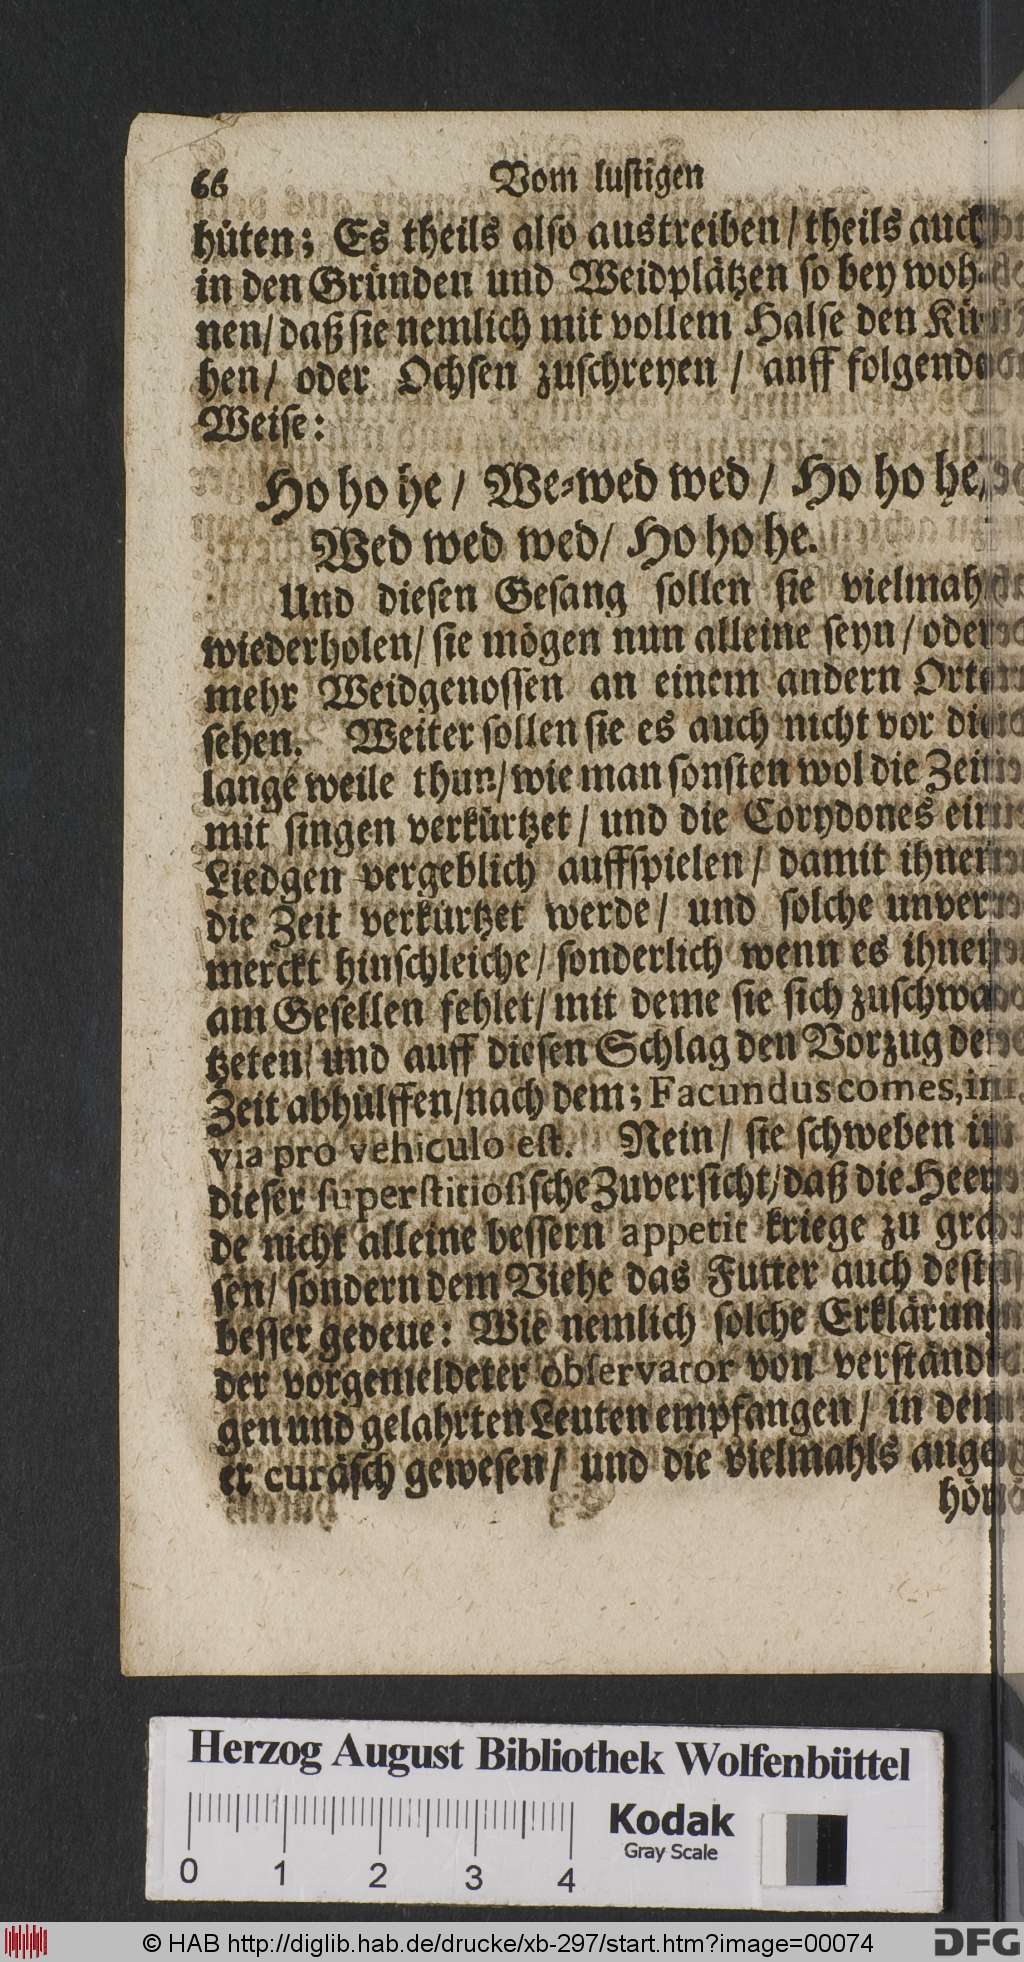 66 Vom lustigen
hüten; Es theils also austreiben / theils auch
in den Gründen und Weidplätzen so bey woh-
nen / daß sie nemlich mit vollem Halse den Kü-
hen / oder Ochsen zuschreyen / auff folgende
Weise:
Ho ho he / We-wed wed / Ho ho he,
Wed wed wed / Ho ho he.
Und diesen Gesang sollen sie vielmah
wiederholen / sie mögen nun alleine seyn / oder
mehr Weidgenossen an einem andern Orte
sehen. Weiter sollen sie es auch nicht vor die
lange weile thun / wie man sonsten wol die Zeit
mit singen verkürtzet / und die Corydones ein
Liedgen vergeblich auffspielen / damit ihnen
die Zeit verkürtzet werde / und solche unver-
merckt hinschleiche / sonderlich wenn es ihnen
am Gesellen fehlet / mit deme sie sich zuschwa-
tzeten / und auff diesen Schlag den Vorzug der
Zeit abhülffen / nach dem; Facundus comes, in
via pro vehiculo est. Nein / sie schweben in
dieser superstitiosische Zuversicht / daß die Heer-
de nicht alleine bessern appetit kriege zu gra-
sen / sondern dem Viehe das Futter auch desto
besser gedeue: Wie nemlich solche Erklärung
der vorgemeldeter observator von verständi-
gen und gelahrten Leuten empfangen / in dem
er curäsch gewesen / und die vielmahls ange-
hör
Herzog August Bibliothek Wolfenbüttel
Kodak
Gray Scale
0 1 2 3 4
© HAB http://diglib.hab.de/drucke/xb-297/start.htm?image=00074
DFG